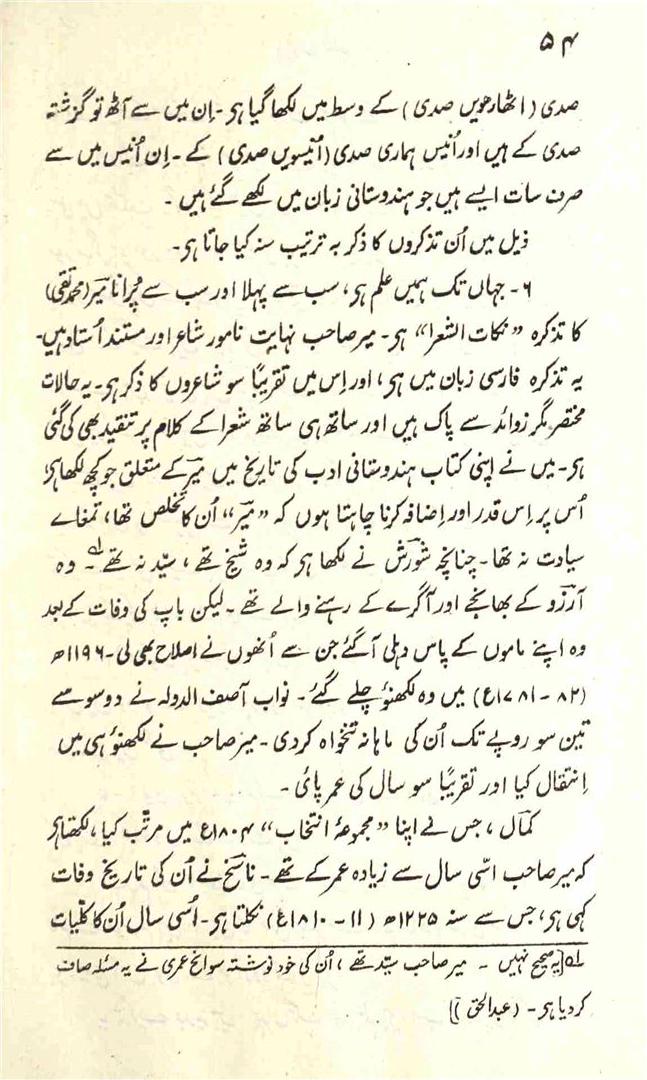 ۵۴
صدی (اٹھارھویں صدی) کے وسط میں لکھا گیا ہو۔ اِن میں سے آٹھ تو گزشتہ
صدی کے ہیں اور اُنیس ہماری صدی (اُنیسویں صدی) کے۔ اِن اُنیس میں سے
صرف سات ایسے ہیں جو ہندوستانی زبان میں لکھے گئے ہیں۔
ذیل میں اُن تذکروں کا ذکر بہ ترتیب سنہ کیا جاتا ہو۔
۶۔ جہاں تک ہمیں علم ہو، سب سے پہلا اور سب سے پُرانا میرؔ (محمد تقی)
کا تذکرہ ”نکات الشعرا“ ہو۔ میر صاحب نہایت نامور شاعر اور مستند اُستاد ہیں۔
یہ تذکرہ فارسی زبان میں ہو، اور اِس میں تقریبًا سو شاعروں کا ذکر ہو۔ یہ حالات
مختصر مگر زوائد سے پاک ہیں اور ساتھ ہی ساتھ شعرا کے کلام پر تنقید بھی کی گئی
ہو۔ میں نے اپنی کتاب ہندوستانی ادب کی تاریخ میں میرؔ کے متعلق جو کچھ لکھا ہو،
اُس پر اِس قدر اور اِضافہ کرنا چاہتا ہوں کہ ”میرؔ“ اُن کا تخلص تھا، تمغاے
سیادت نہ تھا۔ چنانچہ شورشؔ نے لکھا ہو کہ وہ شیخ تھے، سیّد نہ تھے لہ۔ وہ
آرزوؔ کے بھانجے اور آگرے کے رہنے والے تھے۔ لیکن باپ کی وفات کے بعد
وہ اپنے ماموں کے پاس دہلی آگئے جن سے اُنھوں نے اصلاح بھی لی۔ ۱۱۹۶ھ
(۸۲ - ۱۷۸۱ع) میں وہ لکھنؤ چلے گئے۔ نواب آصف الدولہ نے دو سو سے
تین سو روپے تک اُن کی ماہانہ تنخواہ کردی۔ میر صاحب نے لکھنؤ ہی میں
اِنتقال کیا اور تقریبًا سو سال کی عمر پائی۔
کمالؔ، جس نے اپنا ”مجموعۂ انتخاب“ ۱۸۰۴ع میں مرتّب کیا، لکھتا ہو
کہ میر صاحب اسّی سال سے زیادہ عمر کے تھے۔ ناسخؔ نے اُن کی تاریخ وفات
کہی ہو، جس سے سنہ ۱۲۲۵ھ (۱۱ - ۱۸۱۰ع) نکلتا ہو۔ اُسی سال اُن کا کلّیات
لہ [یہ صحیح نہیں۔ میر صاحب سیّد تھے، اُن کی خود نوشتہ سوانح عمری نے یہ مسئلہ صاف
کردیا ہو۔ (عبدالحق)]